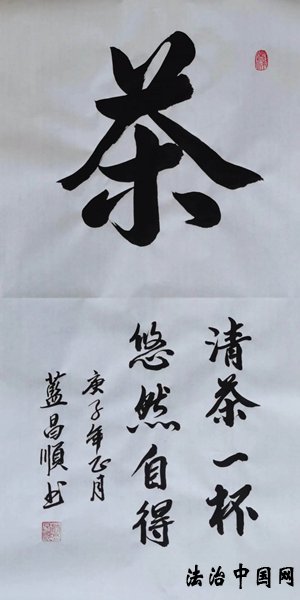 茶
清茶一杯
悠然自得
庚子年正月
藍昌順书
法治中国网